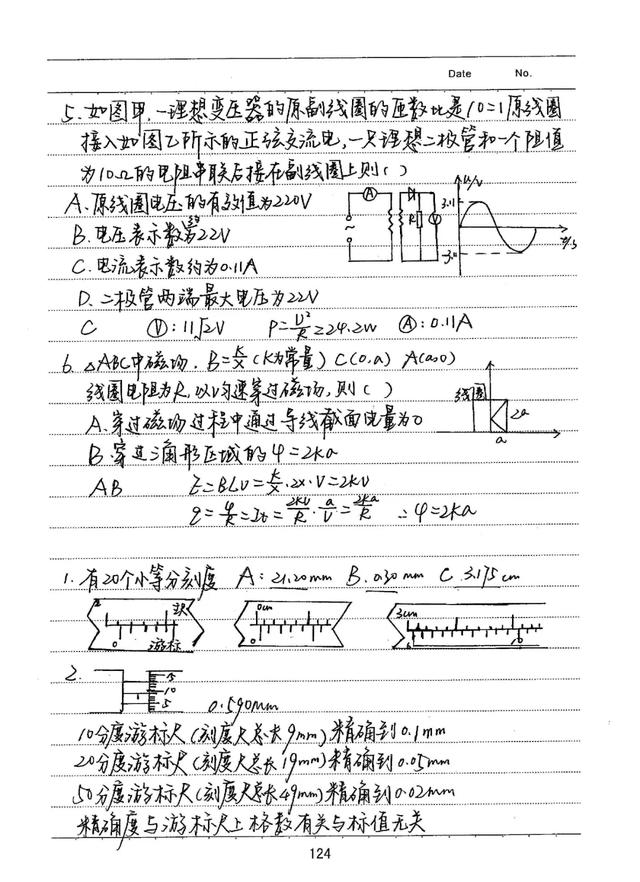 Date No.
5. 如图甲,一理想变压器的原副线圈的匝数比是10:1原线圈
接入如图乙所示的正弦交流电,一只理想二极管和一个阻值
为10Ω的电阻串联后接在副线圈上则( )
A.原线圈电压的有效值为220V
B.电压表示数约为22V
C.电流表示数约为0.11A
D.二极管两端最大电压为22V
C Ⓥ:11√2V P=U²/R=24.2W Ⓐ:0.11A
A R V u/V 3.11 t/s
6. △ABC中磁场. B=k/x (k为常量) C(0,a) A(a,0)
线圈电阻为R,以V匀速穿过磁场,则( )
A.穿过磁场过程中通过导线截面电量为0
B.穿过三角形区域的φ=2ka
线圈 2a a
AB E=BLV=k/x·2x·V=2kV
q=φ/R=It=2kV/R·a/V=2ka/R ∴φ=2ka
1.有20个小等分刻度 A:21.20mm B.0.30mm C 3.175cm
2 主尺 0 游标
0cm 0
3cm 10
2. 15 10 5
0.590mm
10分度游标尺(刻度尺总长9mm)精确到0.1mm
20分度游标尺(刻度尺总长19mm)精确到0.05mm
50分度游标尺(刻度尺总长49mm)精确到0.02mm
精确度与游标尺上格数有关与标值无关
124